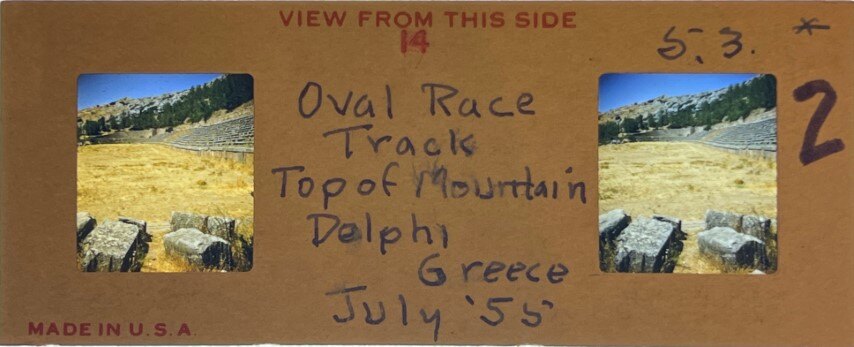 VIEW FROM THIS SIDE
14
5.3. *
2
Oval Race
Track
Top of Mountain
Delphi
Greece
July '55
MADE IN U.S.A.